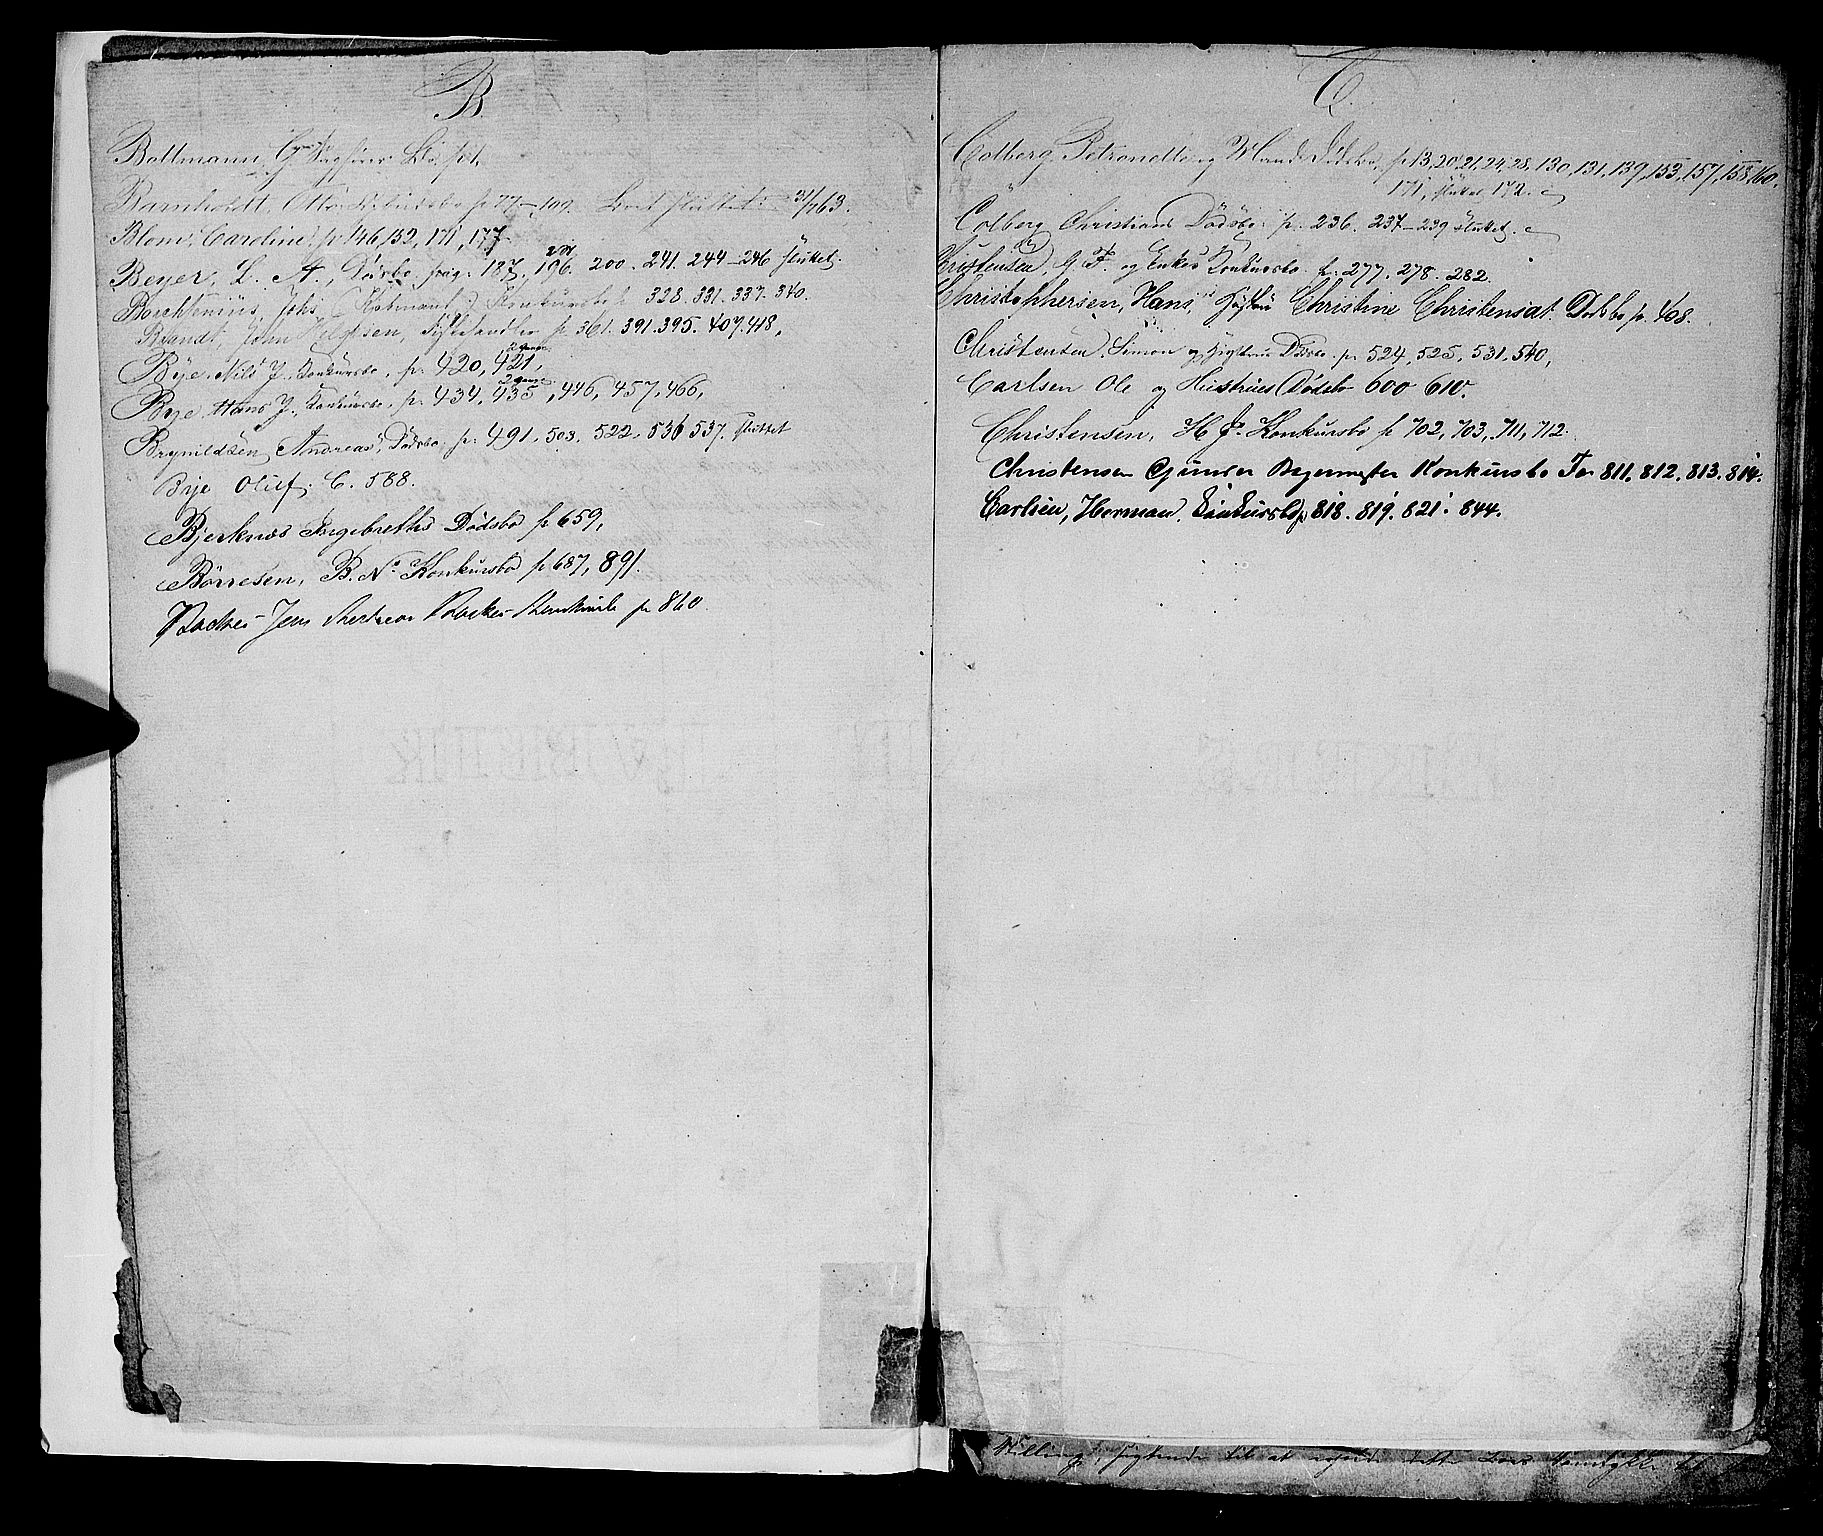 B.
Boltmann, Sagfører
Barnholdt, Otto p 77-109. 31/7 63.
Blom, Caroline, p 146, 152, 171, 177
Beyer, L. A., Dødsbo, pag. 187. 196. 200. 241. 244-246 sluttet.
Johs. Konkursbo p. 328. 331. 337. 340.
Brandt, John p. 361. 391. 395. 407. 418,
Bye, Nils J., Konkursbo, p. 420, 421,
Bye Hans J., Konkursbo, p. 434, 435, 446, 457, 466,
Brynildsen, Andreas' Dødsbo, p. 491. 503. 522. 536 537. sluttet
Bye Oluf. C. 588.
Bjerknæs Ingebreths Dødsbo p 659,
Börresen, B. N. Konkursbo p 687, 891.
Backer Jens p 860.
C.
Colberg, Petronelle og Mands Dødsbo, p 13, 20, 21, 24, 28, 130, 131, 139, 153, 157, 158, 160.
171, sluttet 172.
Colberg Christians Dødsbo. p. 236. 237-239 sluttet.
Kristensen, og Enkes Konkursbo p. 277. 278. 282.
Christophersen, Hans, Christine Christensdt. Dødsbo p. 408.
Christensen, Simon og Hustrus Dødsbo p. 524, 525, 531. 540,
Carlsen Ole og Hustrues Dødsbo 600 610.
Christensen, H. J. Konkursbo p 702, 703, 711, 712.
Christensen Gunder Bygmester Konkursbo Fo 811. 812. 813. 814.
Carlsen, Herman, Konkursbo p 818. 819. 821. 844.
til at dette